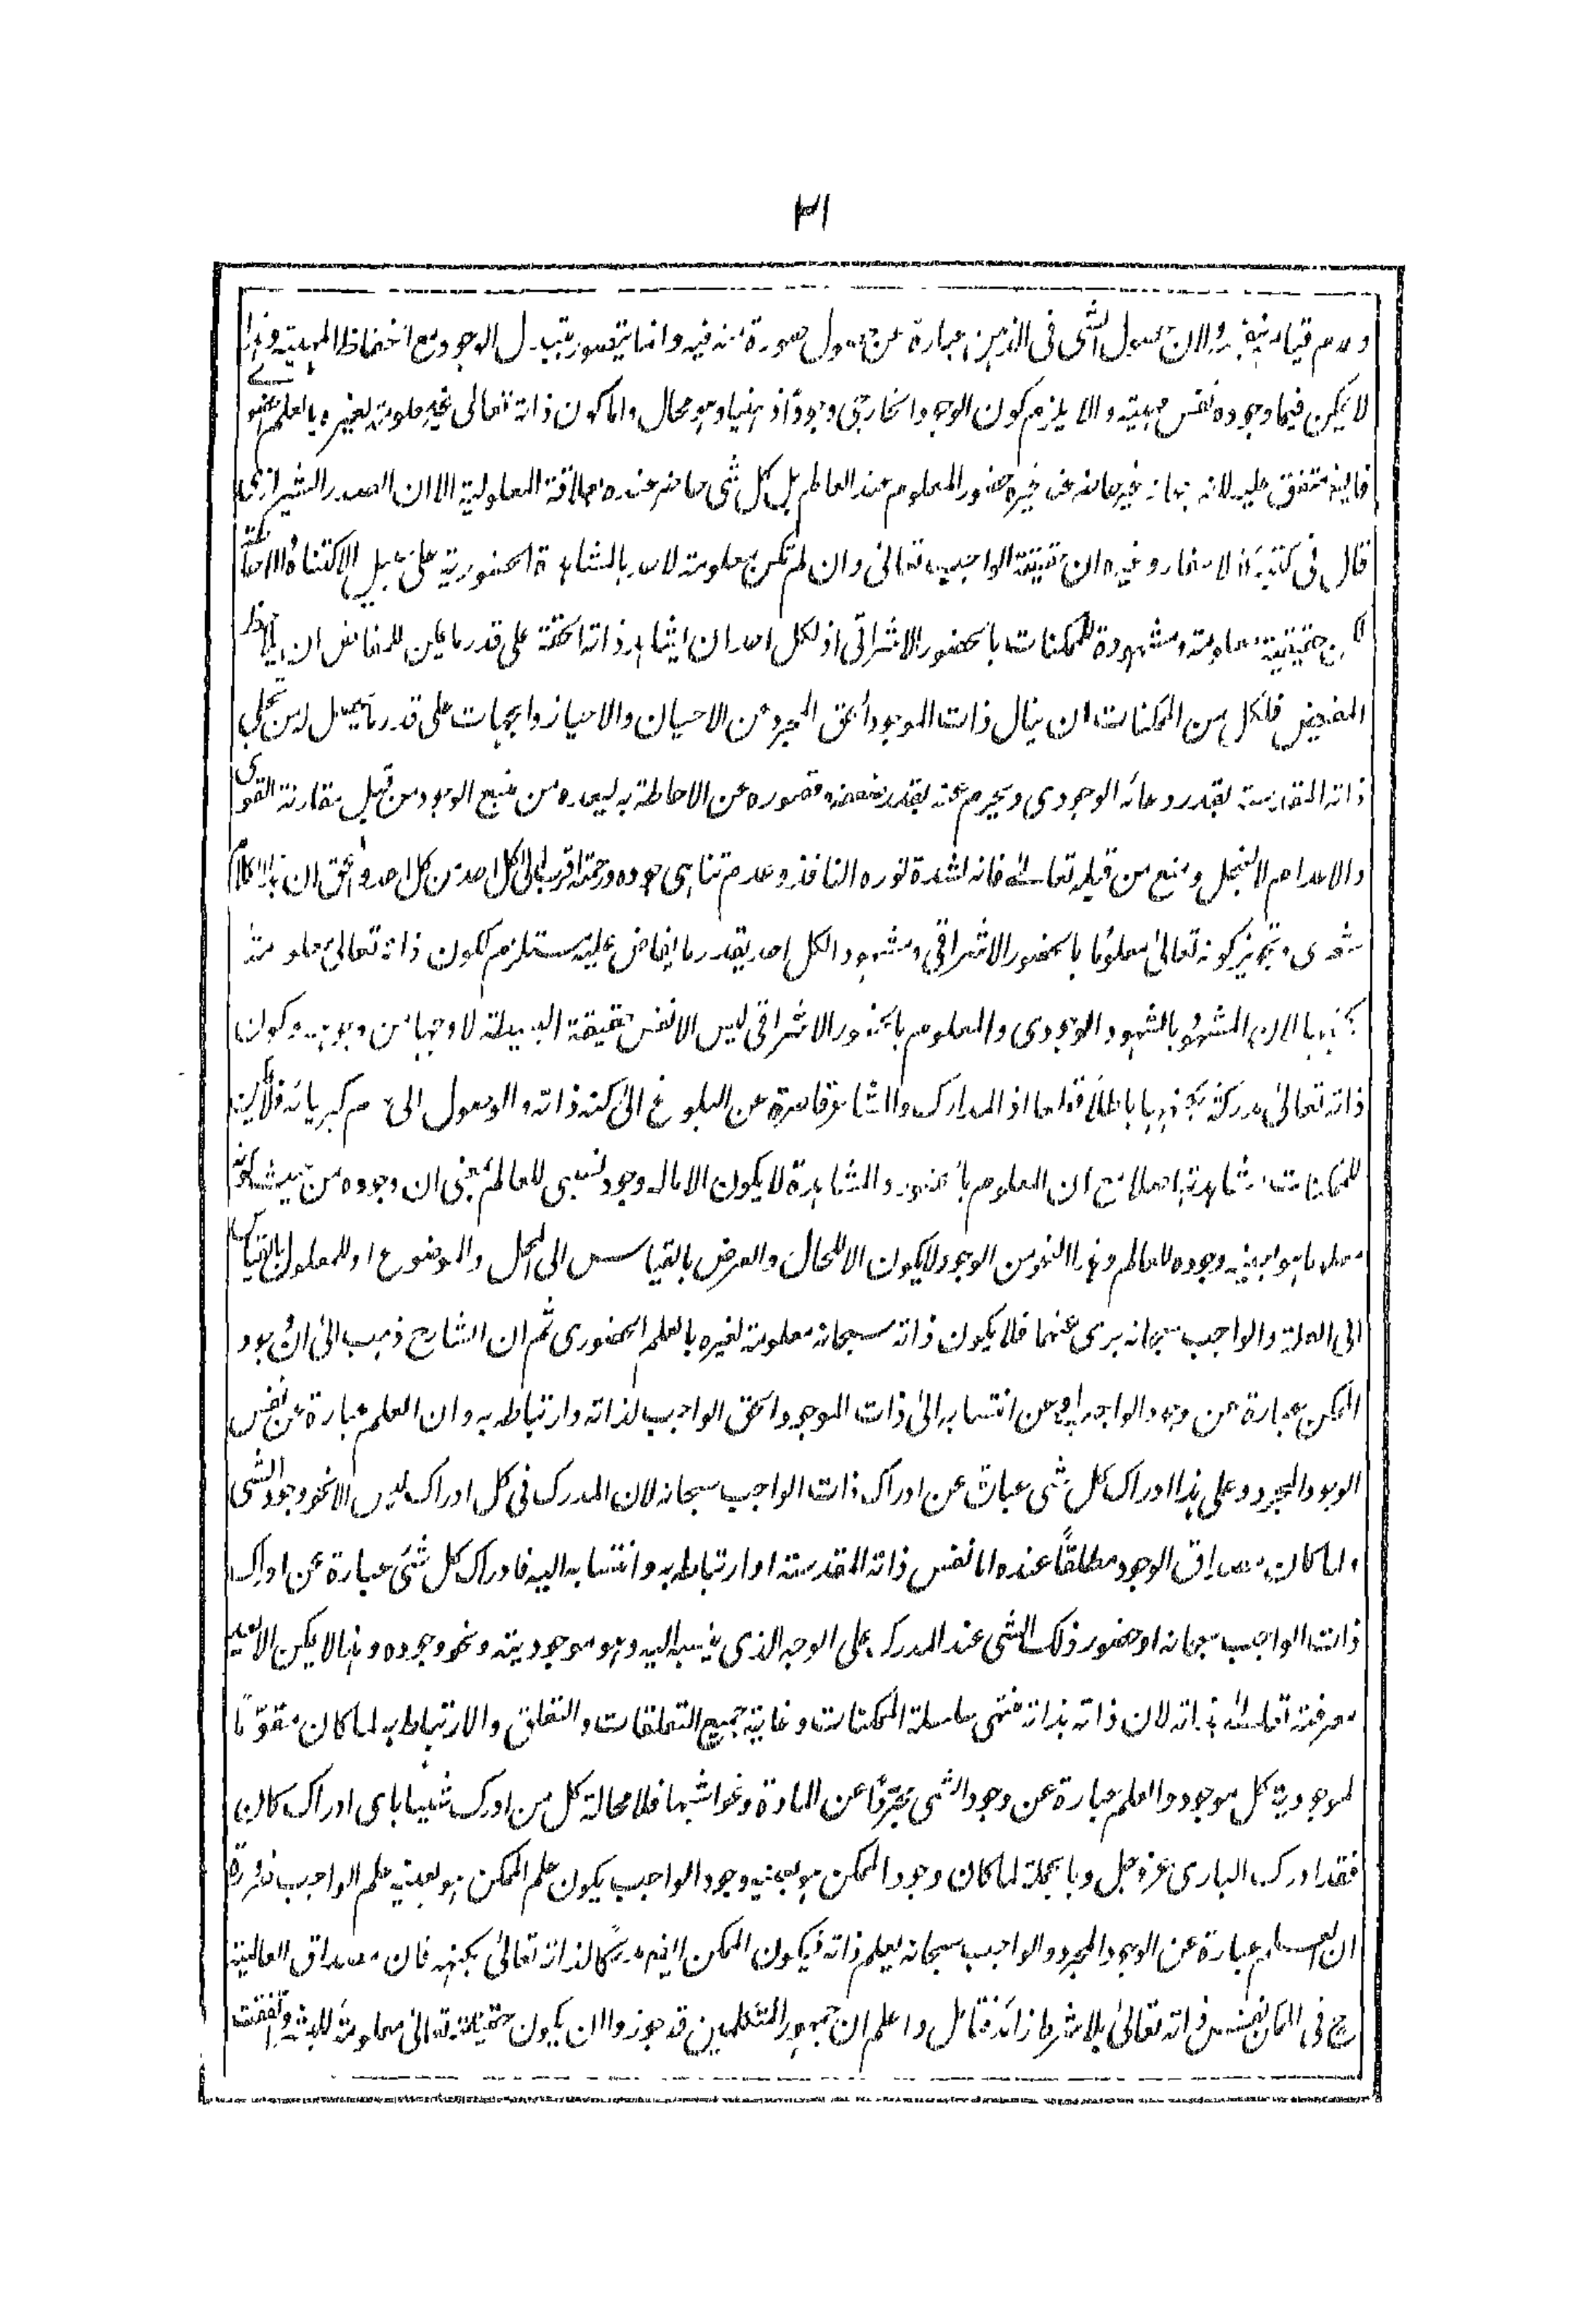 ٣١
وعدم قيامه بنفسه ولان حصول الشئ فى الذهن عبارة عن حصول صورة منه فيه وانما يتصور بتبدل الوجود مع انحفاظ المهية وهذا
لا يمكن فيما وجوده نفس مهيته والا يلزم كون الوجود الخارجى وجودا ذهنيا وهو محال واما كون ذاته تعالى غير معلومة لغيره بالعلم الحضورى
فايضا متفق عليه لانه بذاته غير غائبة عن غيره حضور المعلوم عند العالم بل كل شئ حاضر عنده بعلاقة المعلولية الا ان الصدر الشيرازى
قال فى كتبه الاسفار وغيره ان حقيقة الواجب تعالى وان لم تكن معلومة لاحد بالمشاهدة الحضورية على سبيل الاكتناه والاحاطة
لكن حقيقته معلومة ومشهودة للممكنات بالحضور الاشراقى اذ لكل احد ان يشاهد ذاته الحقة على قدر ما يمكن للمفاض ان يلاحظ
المفيض فلكل من الممكنات ان ينال ذات الموجود الحق المجرد عن الاحيان والاحياز والجهات على قدر ما يحصل له من تجلى
ذاته المقدسة بقدر وعائه الوجودى ويحرم عنه بقدر ضعفه وقصوره عن الاحاطة به لبعده من منبع الوجود من قبل مقارنة القوى
والاعدام لا لبخل ومنع من قبله تعالى فانه لشدة نوره النافذ وعدم تناهى جوده ورحمته اقرب الى كل احد من كل احد والحق ان هذا الكلام
شعرى وتجويز كونه تعالى معلوما بالحضور الاشراقى ومشهودا لكل احد بقدر ما يفاض عليه مستلزم لكون ذاته تعالى معلومة
بكنهها لان المشهود بالشهود الوجودى والمعلوم بالحضور الاشراقى ليس الا نفس حقيقة البسيطة لا وجها من وجوهه وكون
ذاته تعالى مدركة بكنهها باطلا قطعا اذ المدارك والمشاعر قاصرة عن البلوغ الى كنه ذاته والوصول الى حرم كبريائه فلا يمكن
للممكنات مشاهدته اصلا مع ان المعلوم بالحضور والمشاهدة لا يكون الا ماله وجود نسبى للعالم بمعنى ان وجوده من حيث كونه
معلوما هو بعينه وجوده للعالم وهذا النحو من الوجود لا يكون الا للحال والعرض بالقياس الى المحل والموضوع او للمعلول بالقياس
الى العلة والواجب سبحانه برئ عنهما فلا يكون ذاته سبحانه معلومة لغيره بالعلم الحضورى ثم ان الشارح ذهب الى ان وجود
الممكن عبارة عن وجود الواجب او عن انتسابه الى ذات الموجود الحق الواجب لذاته وارتباطه به وان العلم عبارة عن نفس
الوجود المجرد وعلى هذا ادراك كل شئ عبارة عن ادراك ذات الواجب سبحانه لان المدرك فى كل ادراك ليس الا نحو وجود الشئ
ولما كان مصداق الوجود مطلقا عنده اما نفس ذاته المقدسة او ارتباطه به وانتسابه اليه فادراك كل شئ عبارة عن ادراك
ذات الواجب سبحانه او حضور ذلك الشئ عند المدرك على الوجه الذى ينسب اليه وهو موجوديته ونحو وجوده وهذا لا يمكن الا بعد
معرفته تعالى بذاته لان ذاته بذاته منتهى سلسلة الممكنات وغاية جميع التعلقات والتعلق والارتباط به لما كان مقوما
لموجودية كل موجود والعلم عبارة عن وجود الشئ مجردا عن المادة وغواشيها فلا محالة كل من ادرك شيئا باى ادراك كان
فقد ادرك البارى عز وجل وبالجملة لما كان وجود الممكن هو بعينه وجود الواجب يكون علم الممكن هو بعينه علم الواجب ضرورة
ان العلم عبارة عن الوجود المجرد والواجب سبحانه يعلم ذاته فيكون الممكن ايضا مدركا لذاته تعالى بكنهه فان مصداق العالمية
ح فى الممكن نفس ذاته تعالى بلا شرط زائد فتامل واعلم ان جمهور المتكلمين قد جوزوا ان يكون حقيقته تعالى معلومة للبشر واتفقت